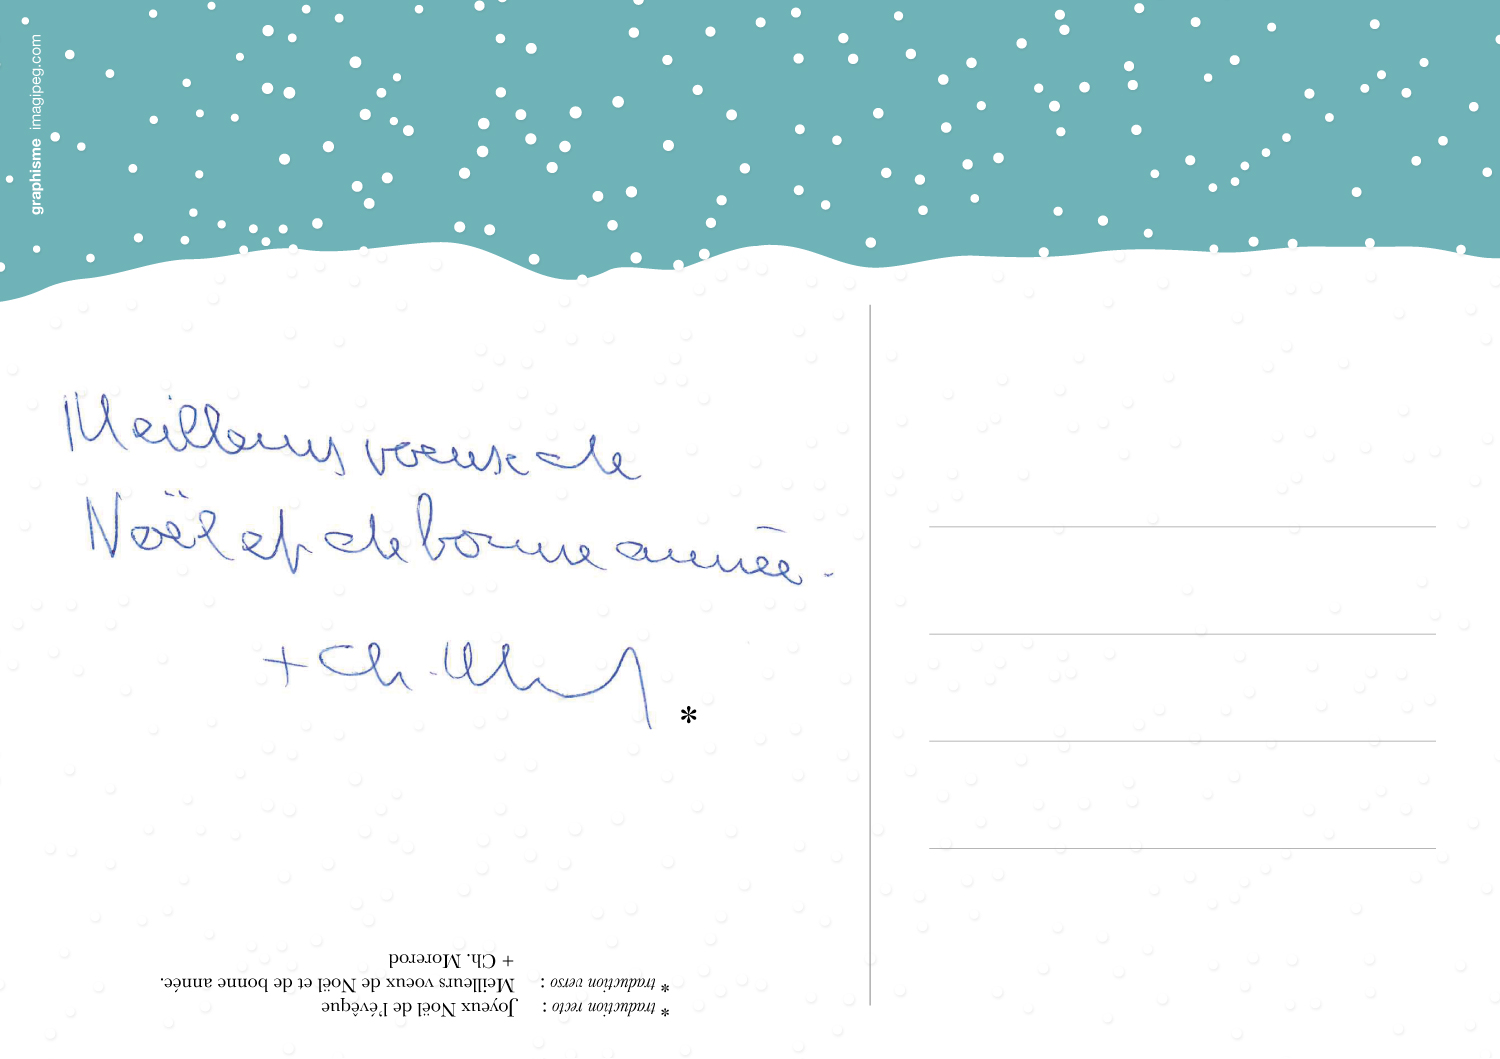 graphisme imagipeg.com
Meilleurs voeux de
Noël et de bonne année.
+ Ch. Morerod
*
* traduction recto : Joyeux Noël de l'évêque
* traduction verso : Meilleurs voeux de Noël et de bonne année.
+ Ch. Morerod